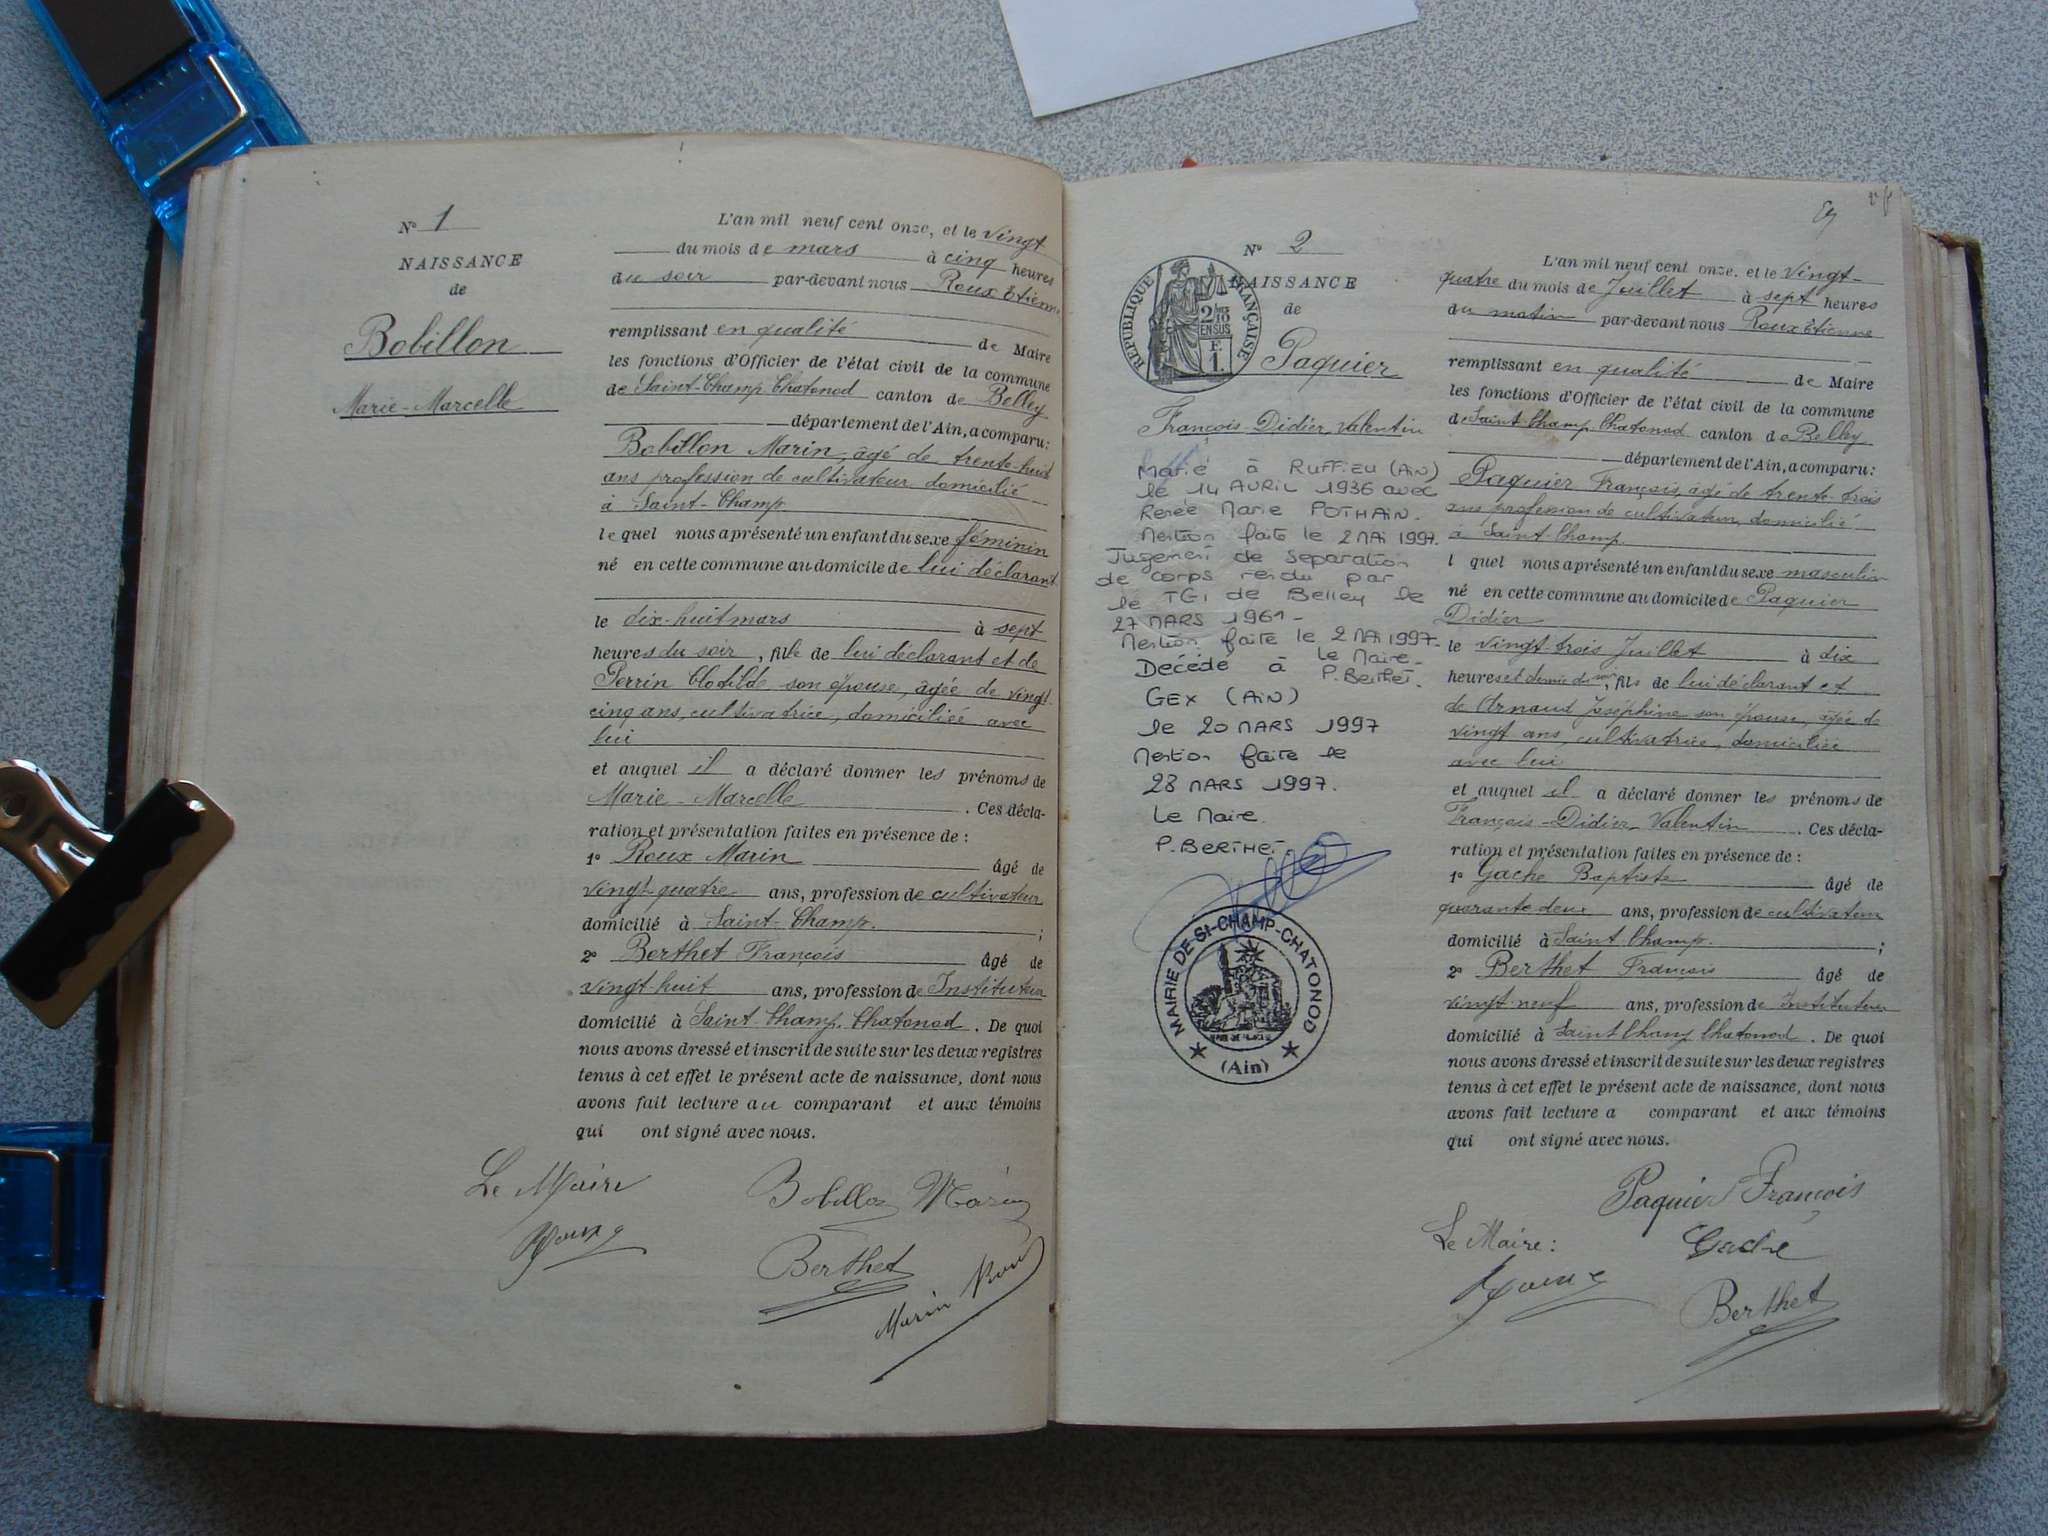 N° 1
NAISSANCE
de
Bobillon
Marie-Marcelle
L'an mil neuf cent onze, et le vingt
du mois de mars à cinq heures
du soir par-devant nous Roux Etienne
remplissant en qualité de Maire
les fonctions d'Officier de l'état civil de la commune
de Saint-Champ Chatonod canton de Belley
département de l'Ain, a comparu:
Bobillon Marin, âgé de trente-huit
ans profession de cultivateur domicilié
à Saint-Champ
lequel nous a présenté un enfant du sexe féminin
né en cette commune au domicile de lui déclarant
le dix-huit mars à sept
heures du soir, fille de lui déclarant et de
Perrin Clotilde son épouse, âgée de vingt-
cinq ans, cultivatrice, domiciliée avec
lui
et auquel il a déclaré donner les prénoms de
Marie-Marcelle. Ces décla-
ration et présentation faites en présence de :
1° Roux Marin âgé de
vingt-quatre ans, profession de cultivateur
domicilié à Saint-Champ. ;
2° Berthet François âgé de
vingt-huit ans, profession de Instituteur
domicilié à Saint-Champ Chatonod. De quoi
nous avons dressé et inscrit de suite sur les deux registres
tenus à cet effet le présent acte de naissance, dont nous
avons fait lecture au comparant et aux témoins
qui ont signé avec nous.
Le Maire
Roux
Bobillon Marin
Berthet
Marin Roux
N° 2
NAISSANCE
de
Paquier
François-Didier, Valentin
REPUBLIQUE FRANÇAISE
2/10
EN SUS
F.
1.
Marié à RUFFIEU (AIN)
le 14 AVRIL 1936 avec
Renée Marie POTHAIN.
Mention faite le 2 MAI 1997.
Jugement de separation
de corps rendu par
le TGI de Belley le
27 MARS 1961-
Mention faite le 2 MAI 1997.
le Maire.
P. Berthet.
Décédé à
GEX (AIN)
le 20 MARS 1997
Mention faite le
28 MARS 1997.
Le Maire.
P. BERTHET
MAIRIE DE ST-CHAMP-CHATONOD
(Ain)
L'an mil neuf cent onze, et le vingt-
quatre du mois de Juillet à sept heures
du matin par-devant nous Roux Etienne
remplissant en qualité de Maire
les fonctions d'Officier de l'état civil de la commune
de Saint Champ Chatonod canton de Belley
département de l'Ain, a comparu:
Paquier François, âgé de trente-trois
ans profession de cultivateur, domicilié
à Saint-Champ
l quel nous a présenté un enfant du sexe masculin
né en cette commune au domicile de Paquier
Didier
le vingt-trois Juillet à dix
heures et demie du soir, fils de lui déclarant et
de Arnaud Joséphine son épouse, âgée de
vingt ans, cultivatrice, domiciliée
avec lui
et auquel il a déclaré donner les prénoms de
François-Didier, Valentin. Ces décla-
ration et présentation faites en présence de :
1° Gache Baptiste âgé de
quarante deux ans, profession de cultivateur
domicilié à Saint Champ. ;
2° Berthet François âgé de
vingt-neuf ans, profession de Instituteur
domicilié à Saint Champ Chatonod. De quoi
nous avons dressé et inscrit de suite sur les deux registres
tenus à cet effet le présent acte de naissance, dont nous
avons fait lecture a comparant et aux témoins
qui ont signé avec nous.
Paquier François
Le Maire:
Gache
Roux
Berthet